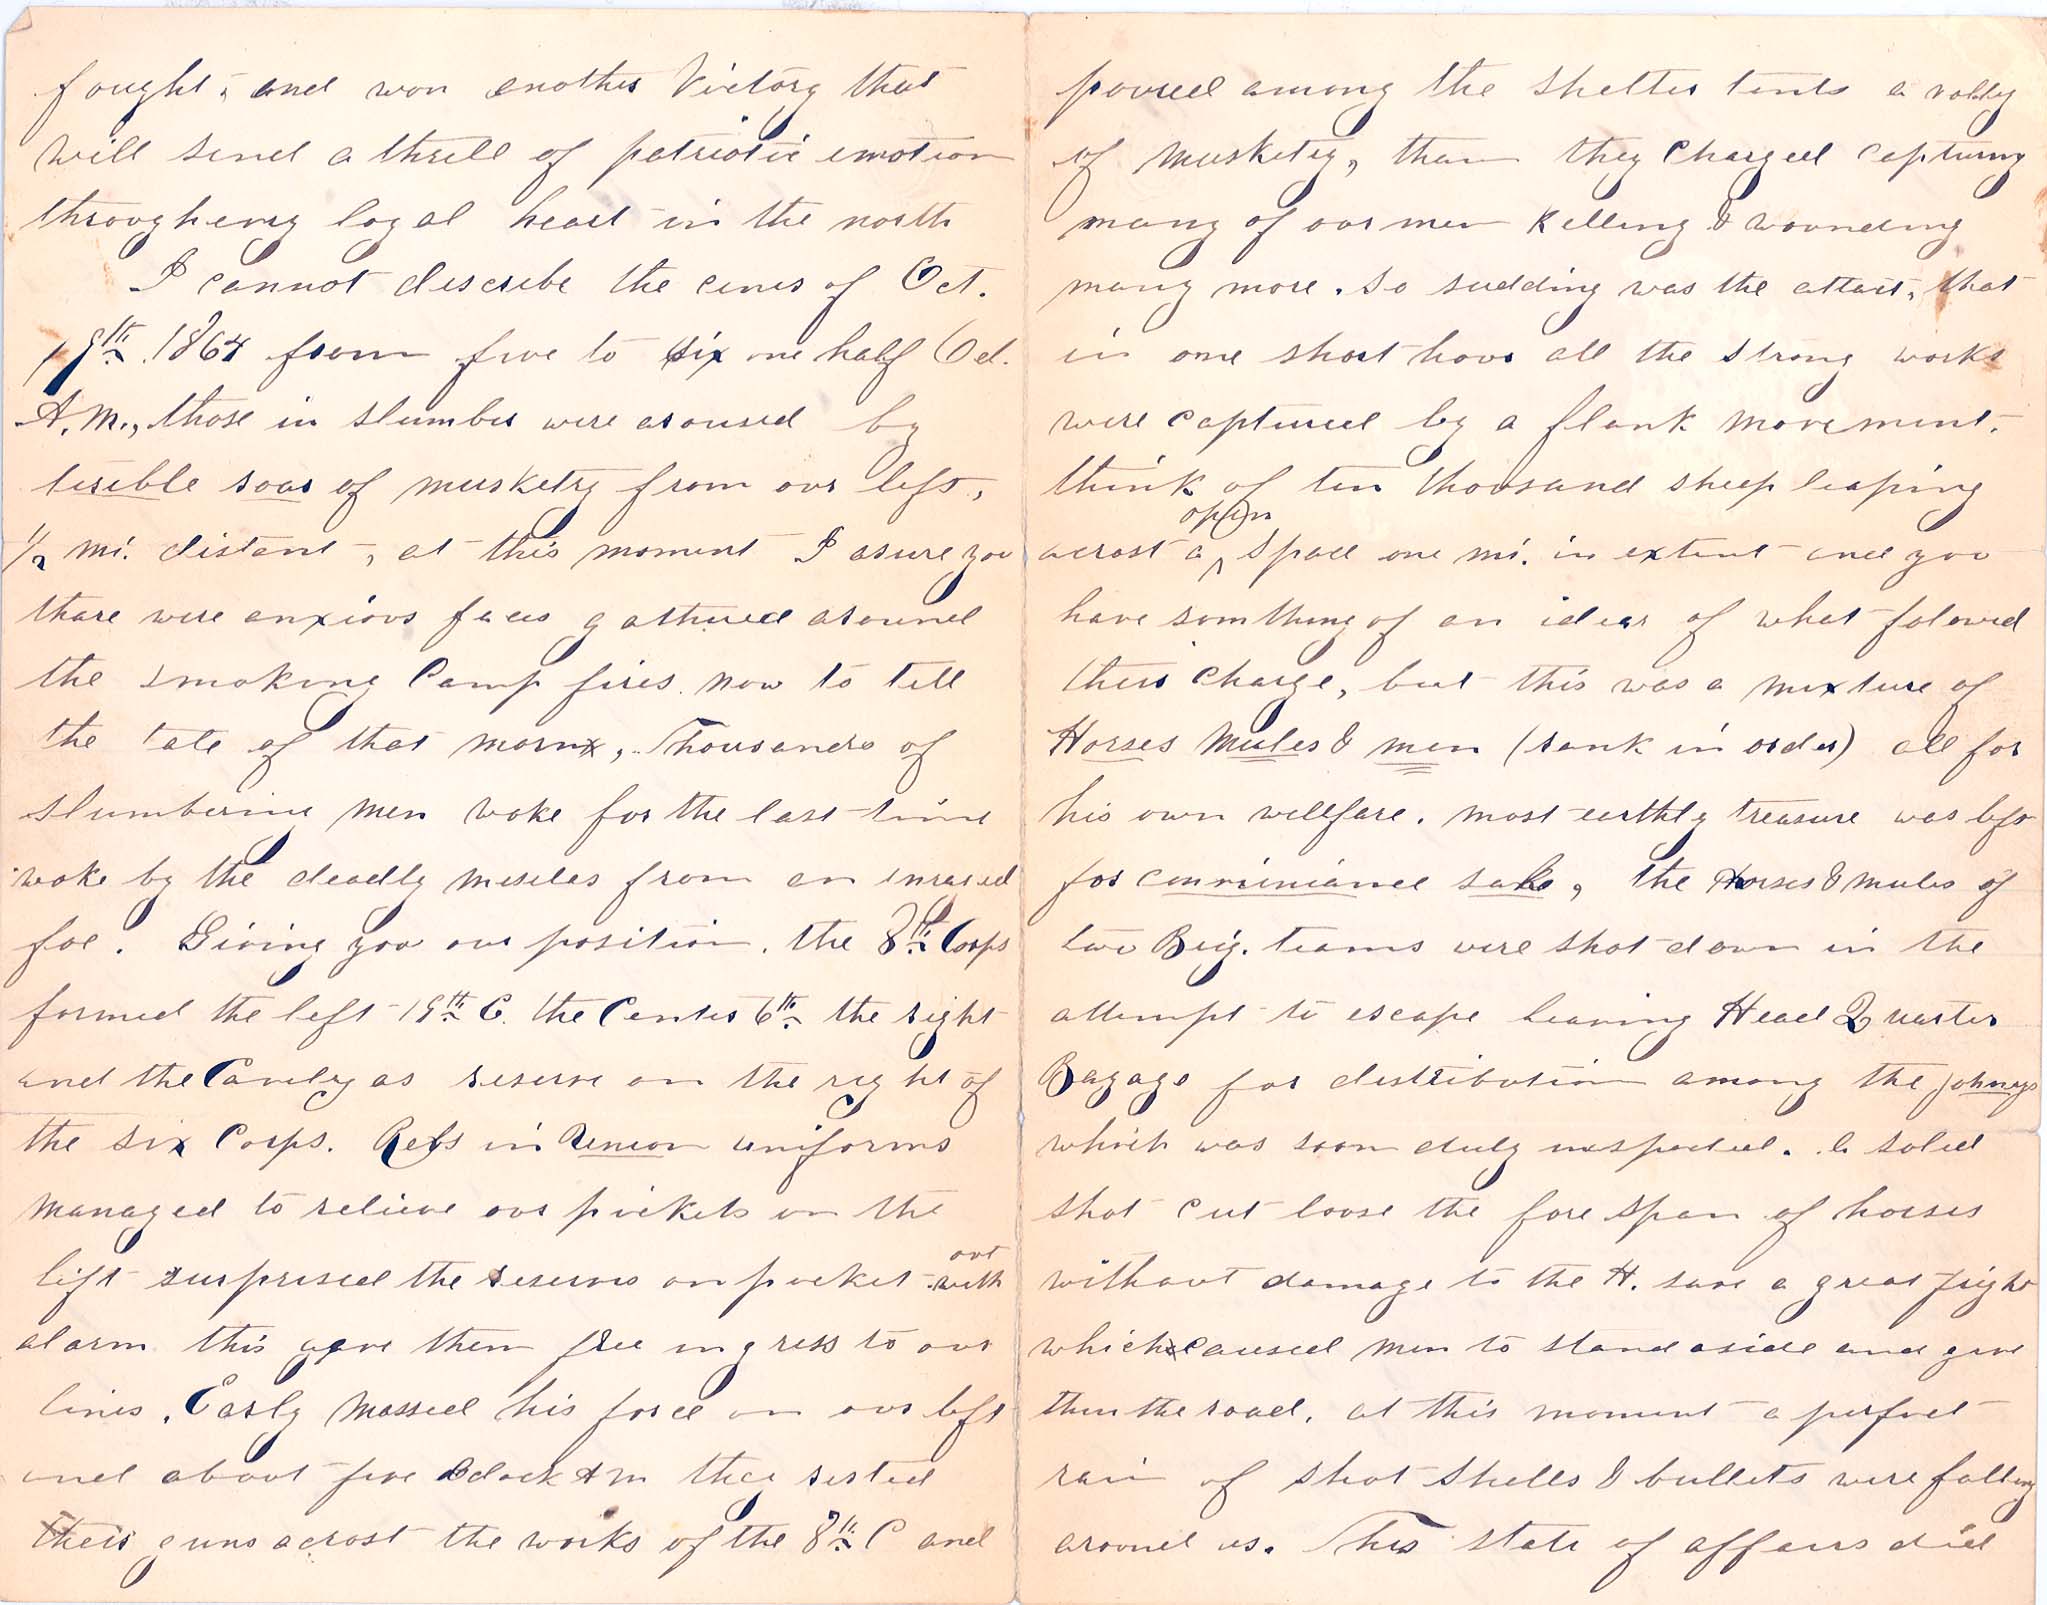 fought, and won another Victory that
will send a thrill of patriotic emotion
through evry loyal heart in the north
I cannot describe the cenes of Oct.
19th 1864 from five to six one half Ocl.
A.M., those in slumber were aroused by
terible roar of musketry from our left,
1/2 mi. distant, at this moment I asure you
thare were anxious faces gathered around
the smoking Camp fires. now to tell
the tale of that morn, Thousands of
slumbering men woke for the last time
woke by the deadly misiles from an inraged
foe. Giving you our position. the 8th Corps
formed the left 19th C. the Center 6th the right
and the Cavelry as reserve on the right of
the six Corps. Rebs in Union uniforms
managed to relieve our pickets on the
left surprised the reserves on picket with out
alarm this gave them free ingress to our
lines. Early massed his force on our left
and about five Oclock AM they rested
their guns acrost the works of the 8th C and
poured among the shelter tents a volley
of musketry, than they Charged capturing
many of our men killing & wounding
many more. so sudding was the attact, that
in one short hour all the strong works
were captured by a flank movement.
think of ten thousand sheep leaping
acrost a open space one mi. in extent and you
have somthing of an idear of what folowed
their Charge, but this was a mixture of
Horses Mules & men (rank in order) all for
his own wellfare. most earthly treasure was left
for conviniance sake, the Horses & mules of
two Brig. teams were shot down in the
attempt to escape leaving Head Quarter
Bagage for distribution among the Johnys
which was soon duly inspected. A solid
shot cut loose the fore span of horses
without damage to the H. save a great fright
which caused men to stand aside and give
them the road. at this moment a perfect
rain of shot shells & bullets were falling
around us. This state of affairs did